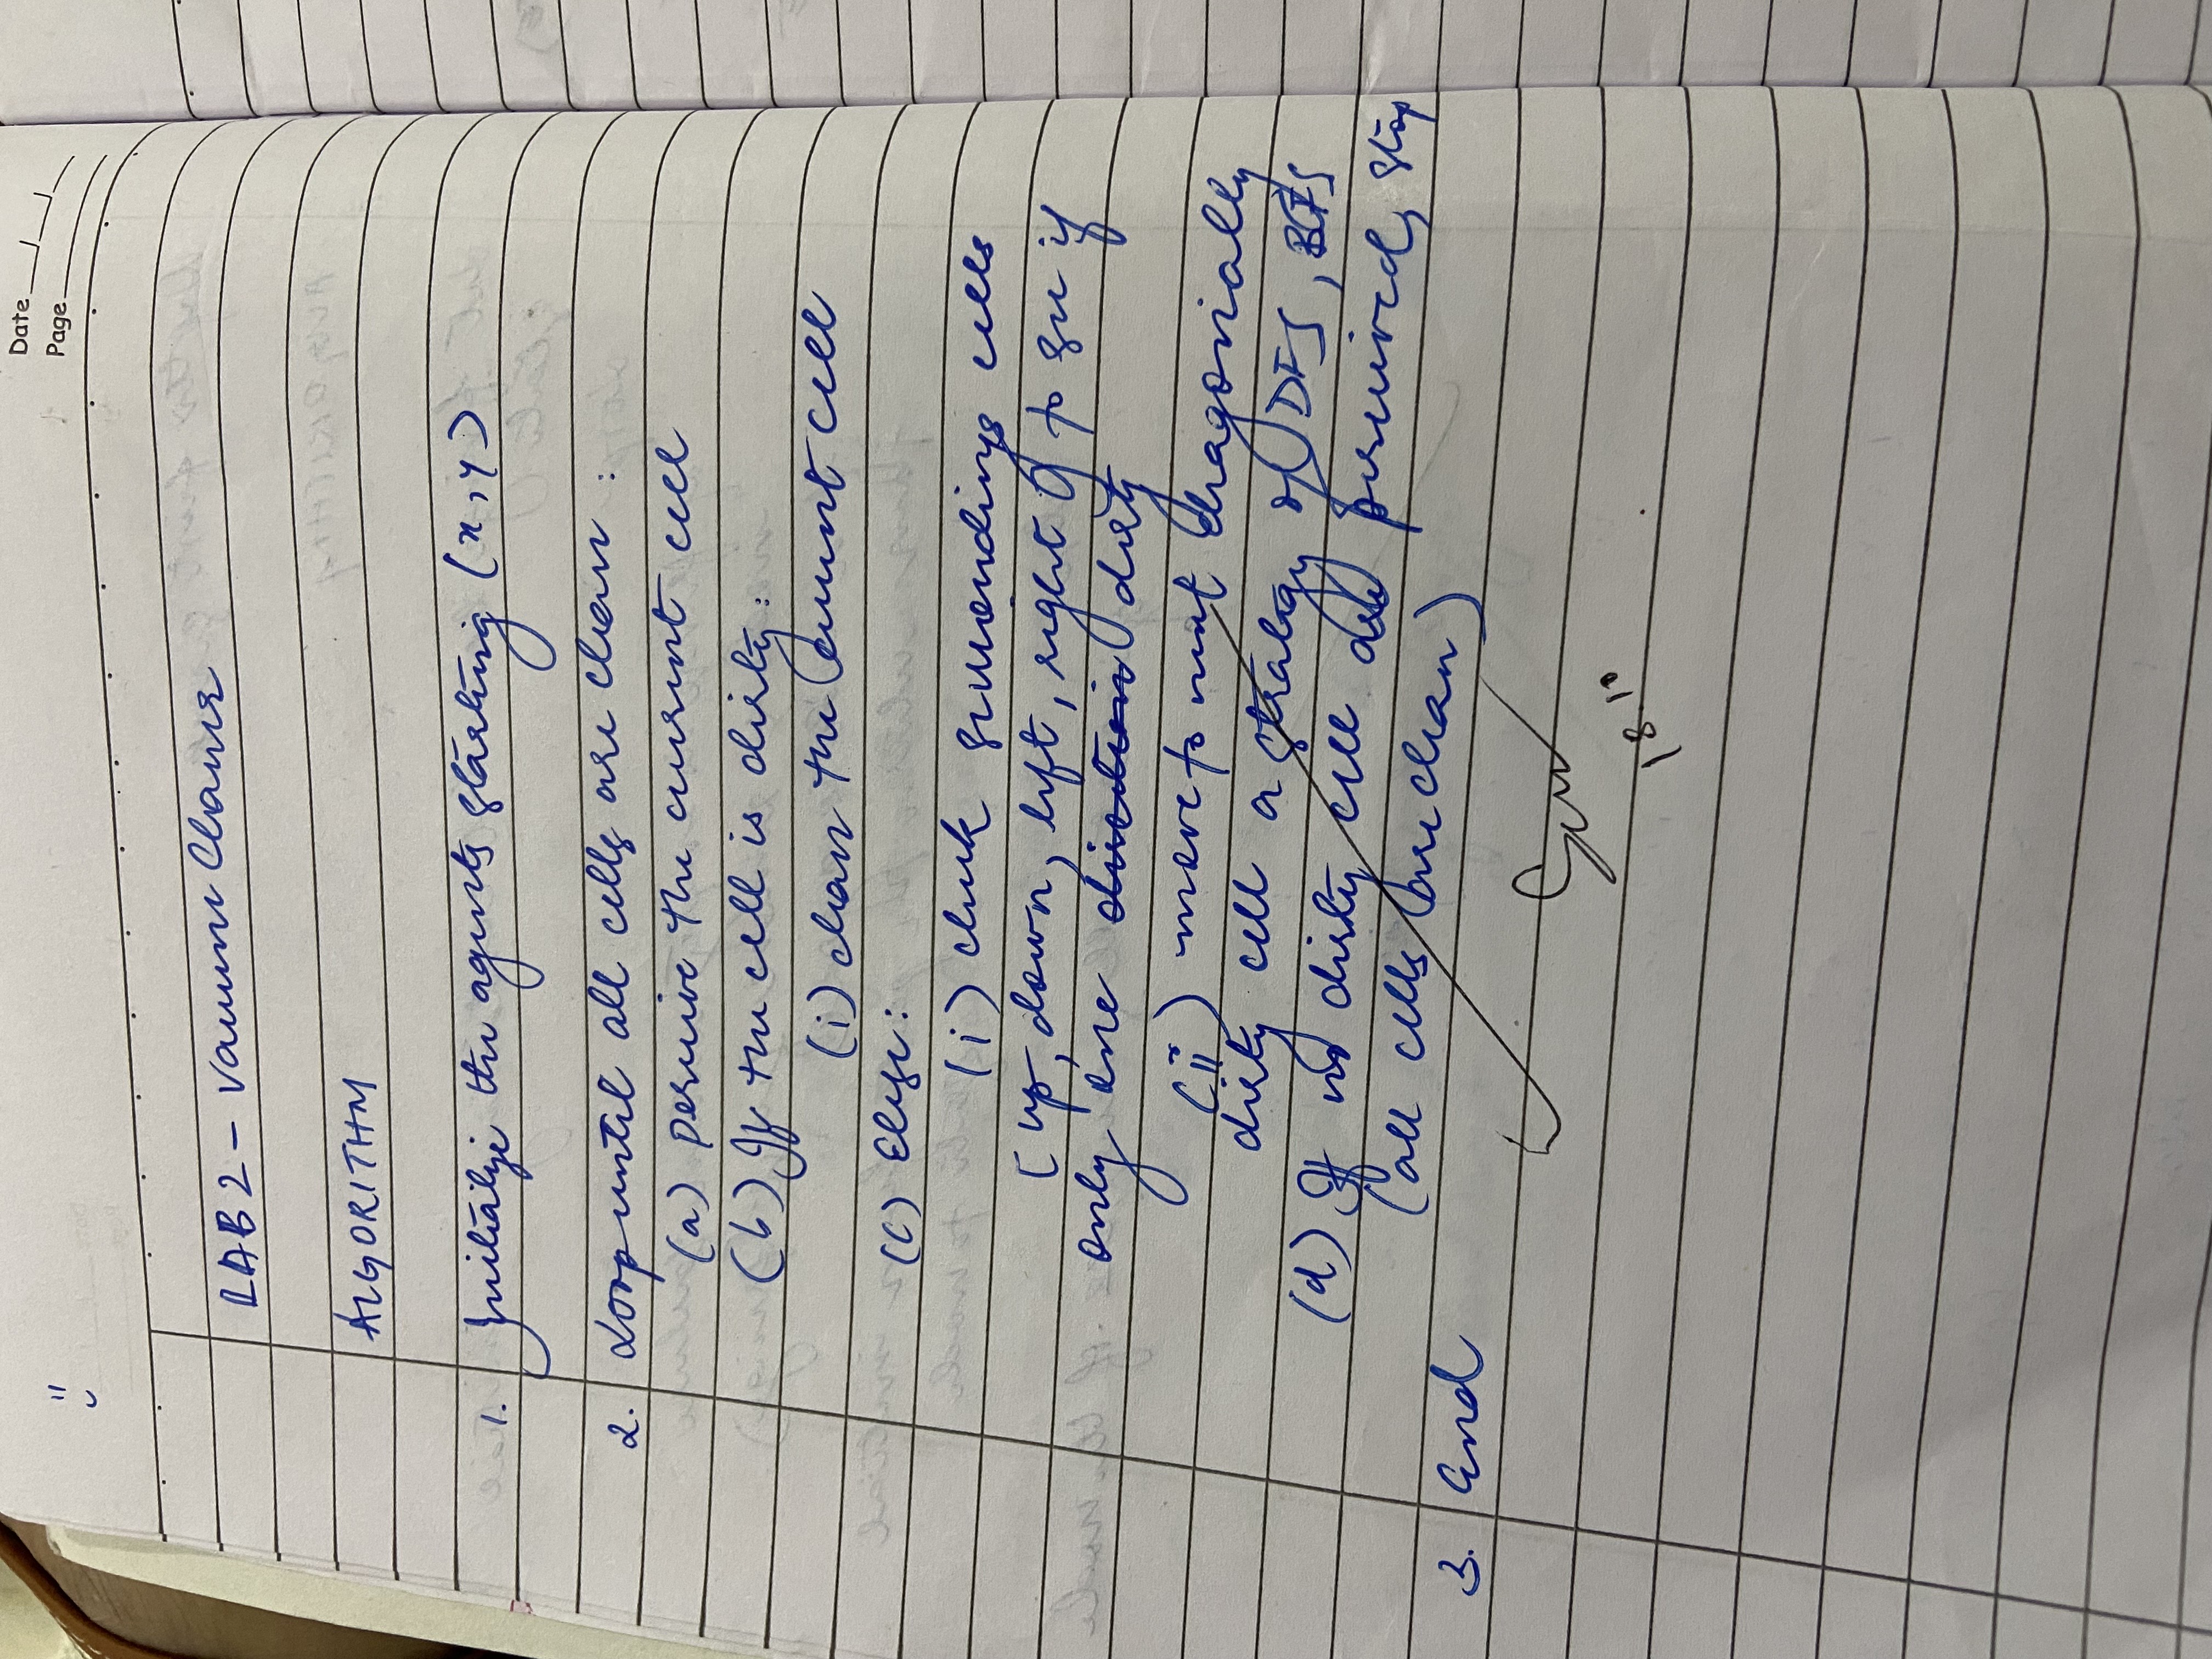 Date
Page
LAB 2 - Vacuum Cleaner
ALGORITHM
1. Initialize the agents starting (x, y)
2. Loop until all cells are clean :
(a) perceive the current cell
(b) If the cell is dirty :
(i) clean the current cell
(c) Else :
(i) check surroundings cells
(up, down, left, right) to see if
only one direction dirty
(ii) move to next diagonally
dirty cell a strategy of DFS, BFS
(d) If no dirty cell are perceived, stop
(all cells are clean)
3. End
18.10